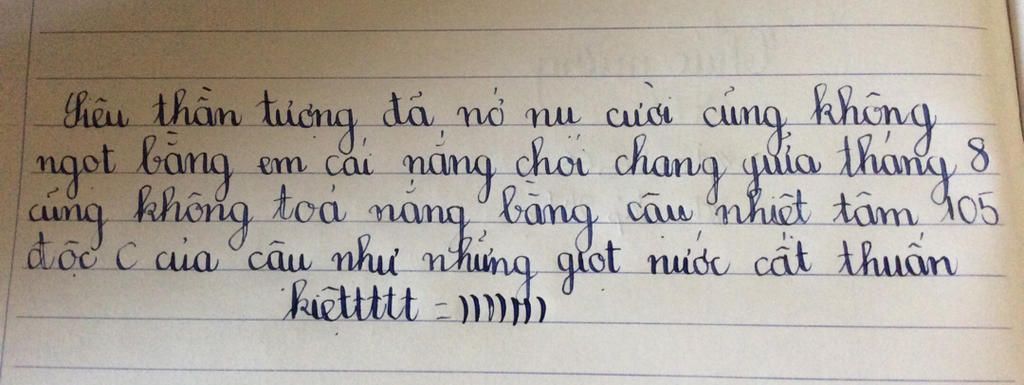 Yêu thần tượng đã nở nụ cười cũng không
ngọt bằng em cái nắng chói chang giữa tháng 8
cũng không toả nắng bằng cậu nhiệt tâm 105
độc C của cậu như những giọt nước cất thuần
kiệttttt =)))))))